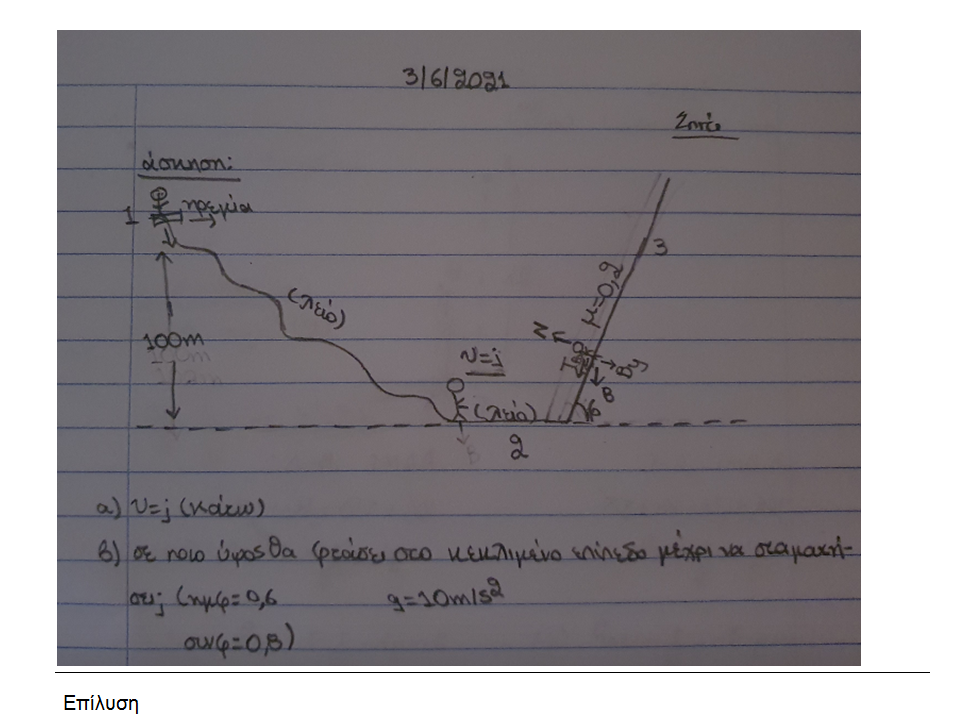 3/6/2021
Σπίτι
άσκηση:
1 ηρεμία
3
(λείο)
μ=0,2
100m
N
T
By
B
υ=;
(λείο)
φ
2
α) υ=; (κάτω)
β) σε ποιο ύψος θα φτάσει στο κεκλιμένο επίπεδο μέχρι να σταματή-
σει; (ημφ=0,6 g=10m/s²
συνφ=0,8)
Επίλυση